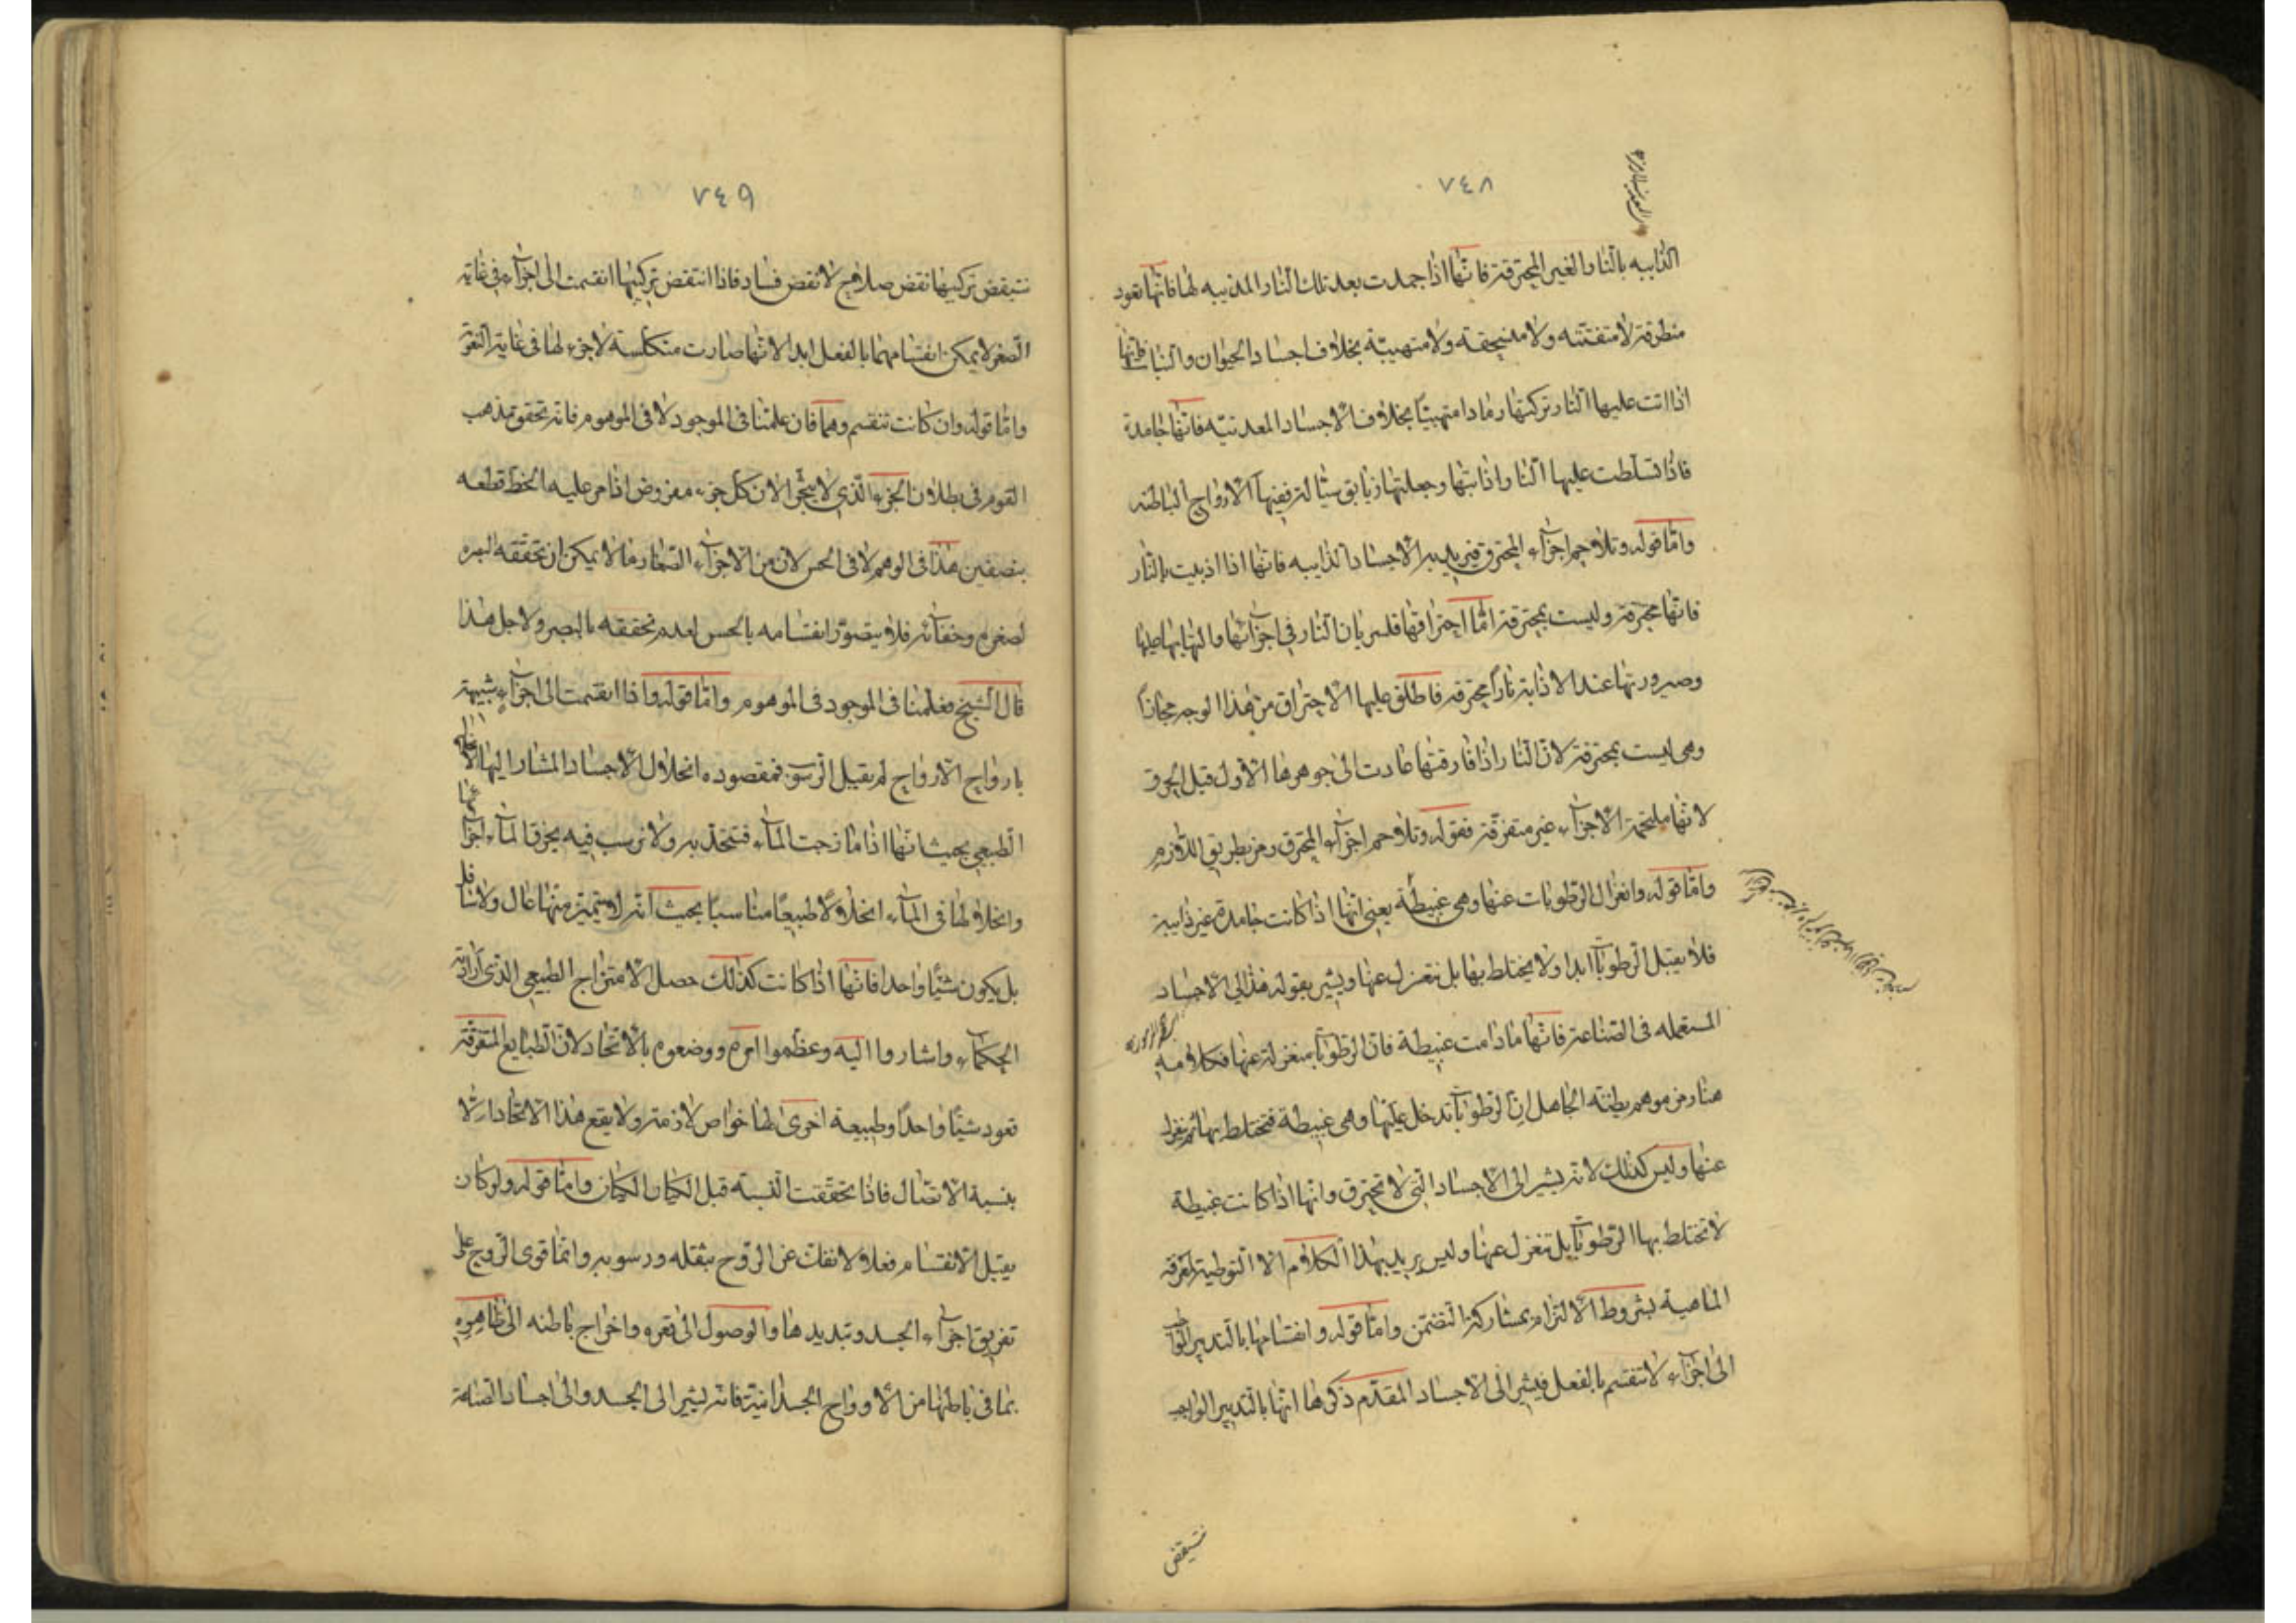 ٧٤٨
الذايبه بالنار الغير المحترقة فانها اذا جمدت بعد تلك النار المذيبه لها فانها تعود
منطرقة لا متفتته ولا منسحقه ولا متهبية بخلاف اجساد الحيوان والنبات فانها
اذا اتت عليها النار تركتها رمادا متهبيًا بخلاف الاجساد المعدنيه فانها جامدة
فاذا تسلطت عليها النار اذابتها وجعلتها زيابق سيالة فيها الارواح الباطنه
واما قوله وتلاحم اجزآء المحترق فيريد به الاجساد الذايبه فانها اذا اذيبت بالنار
فانها محرقة وليست بمحترقة انما احتراقها لسريان النار في اجزآئها والتهابها عليها
وصيرورتها عند الاذابة نارًا محرقه فاطلق عليها الاحتراق من هذا الوجه مجازًا
وهى ليست بمحترقة لان النار اذا فارقتها عادت الى جوهرها الاول قبل الحرق
لانها ملتحمة الاجزآء غير متفرقة فقوله وتلاحم اجزآء المحترق رمز بطريق اللازم
واما قوله وانعزال الرطوبات عنها وهى غبيطة يعنى انها اذا كانت جامدة غير ذايبة
فلا يقبل الرطوبات ابدا ولا يختلط بها بل تنعزل عنها ويشير بقوله هذا الى الاجساد
المستعمله فى الصناعة فانها ما دامت غبيطة فان الرطوبات بمنعزلة عنها فكلامه
هنا رمز موهم يظنه الجاهل ان الرطوبات تدخل عليها وهى غبيطة فتختلط بها ثم تنعزل
عنها وليس كذلك لانه يشير الى الاجساد التى لا تحترق وانها اذا كانت غبيطة
لا تختلط بها الرطوبات بل تنعزل عنها وليس يريد بهذا الكلام الا التوطية لمعرفة
الماهية بشروط الالتزام بمشاركة التضمن واما قوله وانقسامها بالتدبير الواجب
الى اجزآء لا تنقسم بالفعل فيشير الى الاجساد المقدم ذكرها انها بالتدبير الواجب
ستنقض
٧٤٩
ستنقض تركيبها نقض صلاح لا نقض فساد فاذا انتقض تركيبها انقسمت الى اجزآء فى غاية
الصغر لا يمكن انقسامهما بالفعل ابدا لانها صارت متكلسة لا جزء لها فى غاية التفرق
واما قوله وان كانت تنقسم وهما فان علمنا فى الموجود لا فى الموهوم فانه تحقق مذهب
القوم فى بطلان الجزء الذى لا يتجزأ لان كل جزء مفروض اذا مر عليه الخط قطعه
بنصفين هذا فى الوهم لا فى الحس لان من الاجزآء الصغار ما لا يمكن ان تحققه البصر
لصغره وخفائه فلا يتصور انقسامه بالحس لعدم تحققه بالبصر ولاجل هذا
قال الشيخ فعلمنا فى الموجود لا فى الموهوم واما قوله واذا انقسمت الى اجزآء شبيهة
بارواح الارواح لم يقبل الرسوب فمقصوده انحلال الاجساد المشار اليها الانحلال
الطبيعى بحيث انها اذا مازجت المآء فتتحد به ولا ترسب فيه بخرق المآء اجزآءها
وانحلالها فى المآء انحلالًا طبيعيًا مناسبًا بحيث انه لا يتميز منها عال ولا سافل
بل يكون شيًا واحدا فانها اذا كانت كذلك حصل الامتزاج الطبيعى الذى ارادته
الحكمآء واشاروا اليه وعظموا امره ووضعوه بالاتحاد لان الطبايع المتفرقة
تعود شيئًا واحدًا وطبيعة اخرى لها خواص لازمة ولا يقع هذا الاتحاد الا
بنسبة الاتصال فاذا تحققت النسبه قبل الكيان الكيان واما قوله ولو كان
يقبل الانقسام فعلا لانفلت عن الروح بثقله ورسوبه وانما قوى الروح على
تفريق اجزآء الجسد وتبديدها والوصول الى قعره واخراج باطنه الى ظاهره
بما فى باطنها من الارواح الجسدانية فانه يشير الى الجسد والى اجساد الصناعة